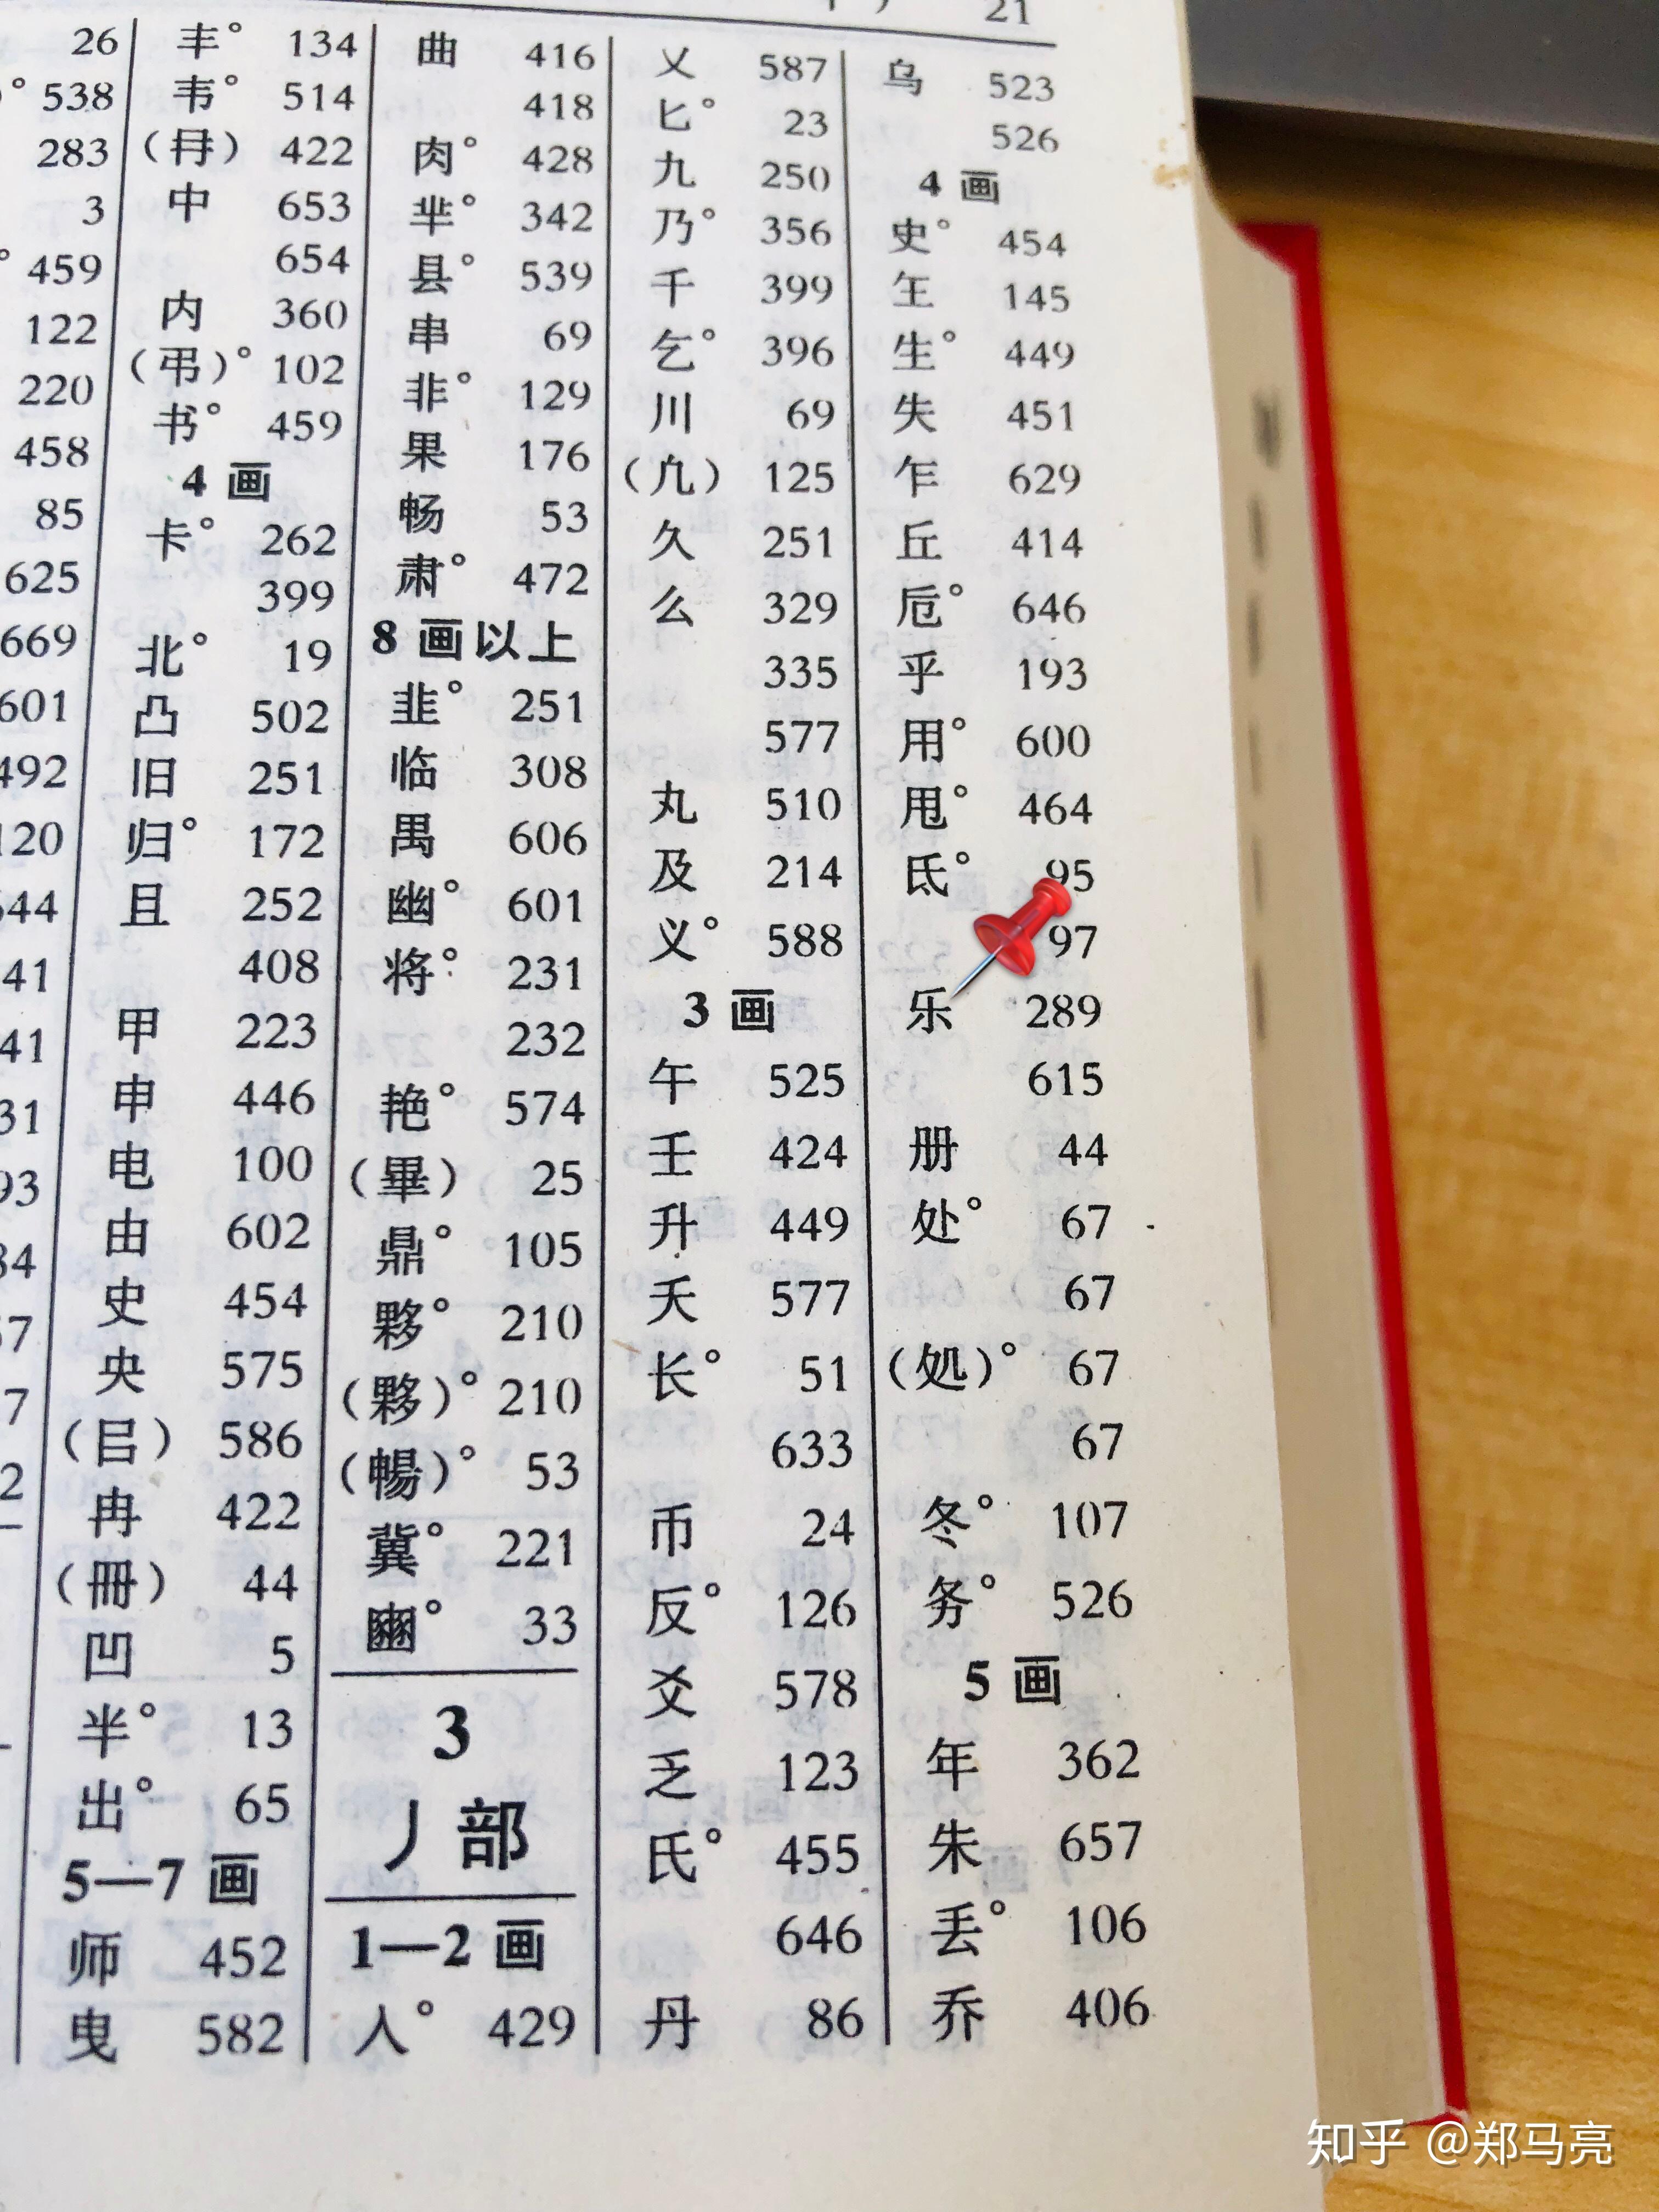 21
26
538
283
3
459
122
220
458
85
625
669
601
492
120
644
41
41
丰° 134
韦° 514
(冄) 422
中 653
654
内 360
(弔)° 102
书° 459
4 画
卡° 262
399
北° 19
凸 502
旧 251
归° 172
且 252
408
甲 223
申 446
电 100
由 602
史 454
央 575
(㠯) 586
冉 422
(冊) 44
凹 5
半° 13
出° 65
5—7 画
师 452
曳 582
曲 416
418
肉° 428
芈° 342
县° 539
串 69
非° 129
果 176
畅 53
肃° 472
8 画以上
韭° 251
临 308
禺 606
幽° 601
将° 231
232
艳° 574
(畢) 25
鼎° 105
夥° 210
(夥)° 210
(暢)° 53
冀° 221
豳° 33
3
丿部
1—2 画
入° 429
乂 587
匕° 23
九 250
乃° 356
千 399
乞° 396
川 69
(凣) 125
久 251
么 329
335
577
丸 510
及 214
义° 588
3 画
午 525
壬 424
升 449
夭 577
长° 51
633
币 24
反° 126
爻 578
乏 123
氏° 455
646
丹 86
乌 523
526
4 画
史° 454
玍 145
生° 449
失 451
乍 629
丘 414
卮° 646
乎 193
用° 600
甩° 464
氐° 95
97
乐 289
615
册 44
处° 67
67
(処)° 67
67
冬° 107
务° 526
5 画
年 362
朱 657
丢° 106
乔 406
知乎 @郑马亮